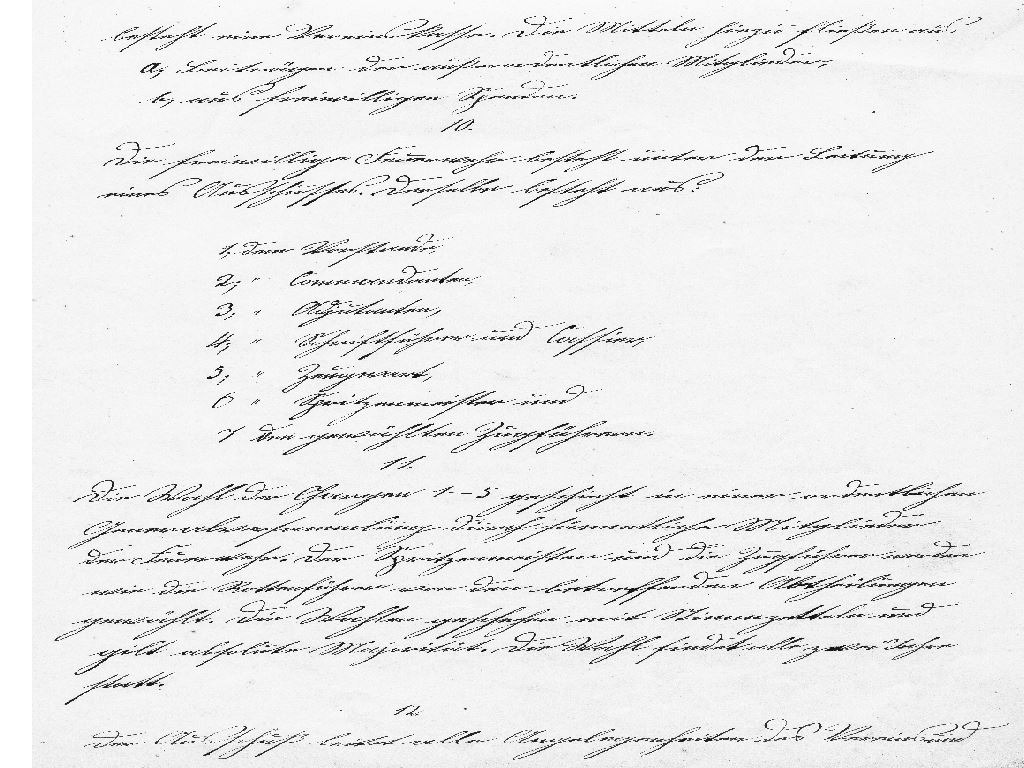 besteht eine Vereins Kasse. Die Mitteln hiezu fließen aus:
a, Beiträgen der außerordentlichen Mitglieder,
b, aus freiwilligen Spenden.
10.
Die freiwillige Feuerwehr besteht unter der Leitung
eines Ausschusses. Derselbe besteht aus:
1, dem Vorstande,
2, " Commandanten,
3, " Adjutanten,
4, " Schriftführer und Cassier,
5, " Zeugwart,
6 " Spritzenmeister und
7 den gewählten Zugsführeren.
11.
Die Wahl der Chargen 1-5 geschieht in einer ordentlichen
Generalversammlung durch sämmtliche Mitglieder
der Feuerwehr. Der Spritzenmeister und die Zugsführer werden
wie die Rottenführer von den betreffenden Abtheilungen
gewählt. Die Wahlen geschehen mit Stimmzetteln und
gilt absolute Majorität. Die Wahl findet alle zwei Jahre
statt.
12.
Der Ausschuß leitet alle Angelegenheiten des Vereins und